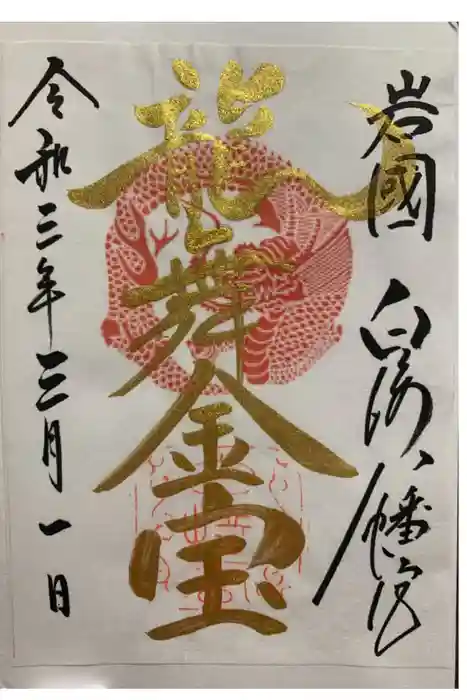 岩國 白崎八幡宮
龍舞金宝
令和三年三月一日